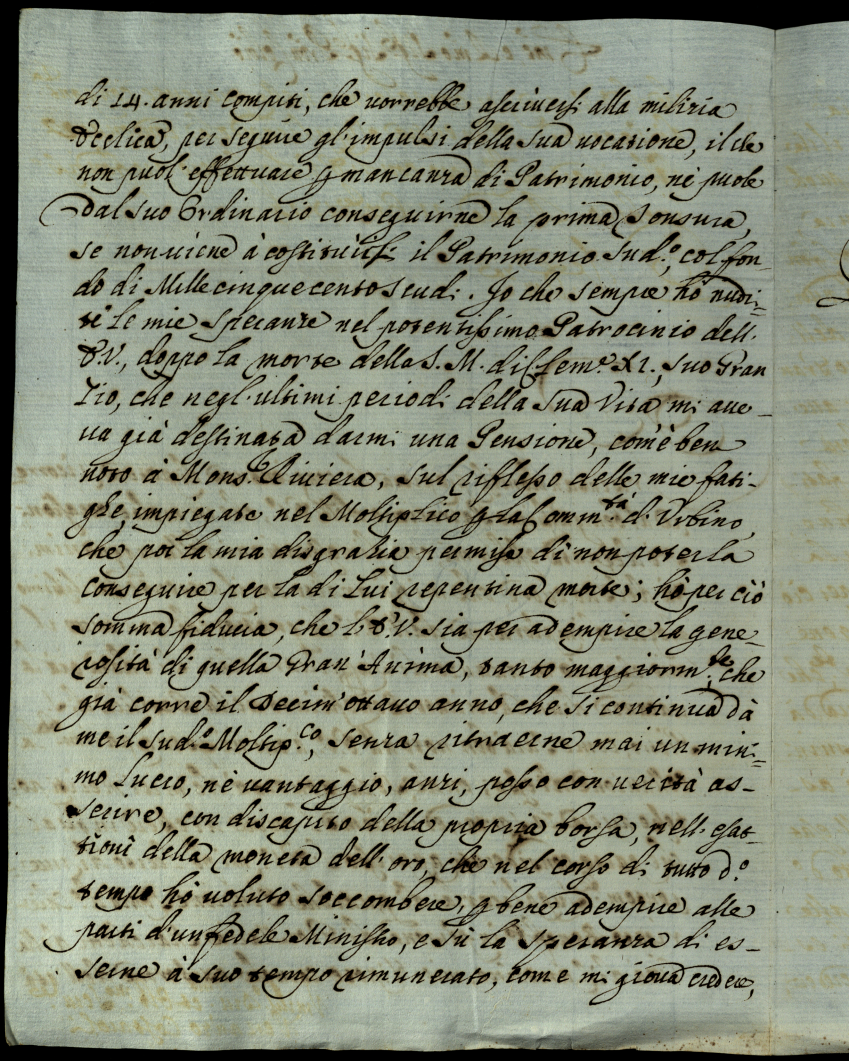 di 14. anni compiti, che vorrebbe ascriversi alla milizia
Ecclica, per seguire gl'impulsi della sua vocazione, il che
non puol' effettuare p mancanza di Patrimonio, nè puole
dal suo Ordinario conseguirne la prima Tonsura,
se non viene à costituirsi il Patrimonio Sud.º, col fon=
do di Mille cinquecento scudi. Io che sempre hò nudri=
te le mie speranze nel potentissimo Patrocinio dell'
E.V., doppo la morte della S. M. di Clem.e XI., suo Gran
Zio, che negl'ultimi periodi della sua Vita mi ave=
va già destinata darmi una Pensione, com'è ben
noto à Mons.r Riviera, sul riflesso delle mie fati=
ghe, impiegate nel Moltiplico p la Comm.tà d'Urbino,
che poi la mia disgrazia permise di non poterla
conseguire per la di Lui repentina morte; hò per ciò
somma fiducia, che l'E.V. sia per adempire la gene=
rosità di quella Gran' Anima, tanto maggiorm.te, che
già corre il decim'ottavo anno, che si continua dà
me il sud.º Moltip.co, senza ritraerne mai un mini=
mo lucro, nè vantaggio, anzi, posso con verità as=
serire, con discapito della propria borsa, nell'esat=
tioni della moneta dell'oro, che nel corso di tutto d.º
tempo hò voluto soccombere, p bene adempire alle
parti d'un fedele Ministro, e sù la speranza di es=
serne à suo tempo rimunerato, come mi giova credere,